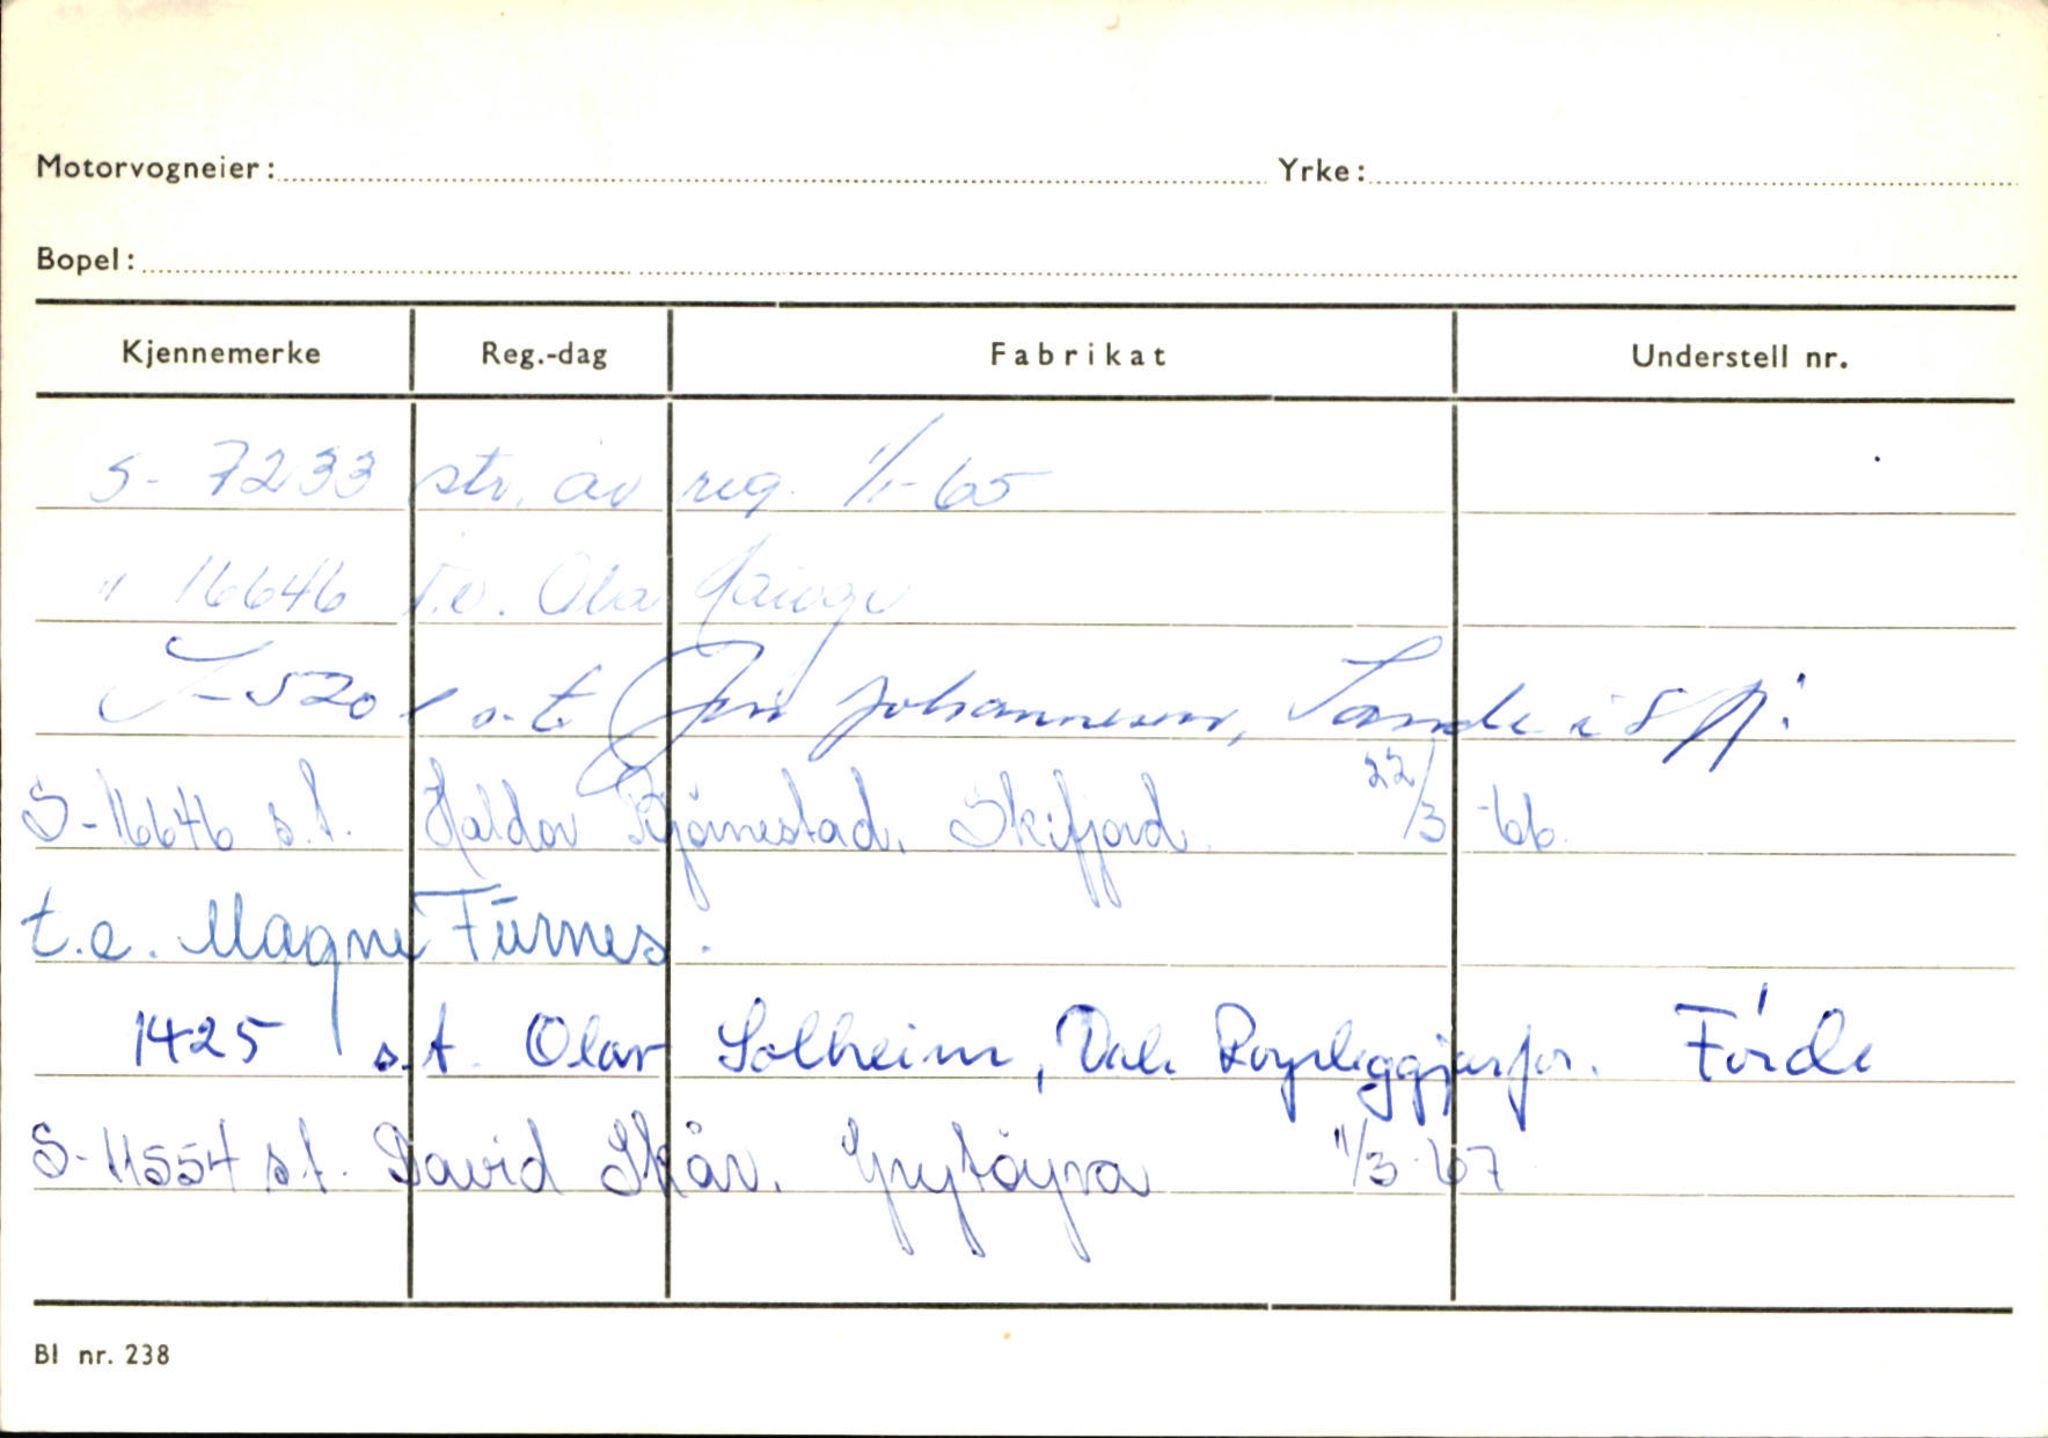 Motorvogneier: Yrke:
Bopel:
Kjennemerke Reg.-dag Fabrikat Understell nr.
S- 7233 str. av reg. 1/1-65
" 16646 t.e. Ola
S-5201 s.t. Jen Johannesen, Sande i S fj:
S-16646 s.t. Haldor Bjørnestad, Skifjord 22/3 -66.
t.e. Magne Fūrnes.
1425 s.t. Olav Solheim, Dale Førde
S-11554 s.t. David Skår. Grytøyra 11/3-67
Bl nr. 238